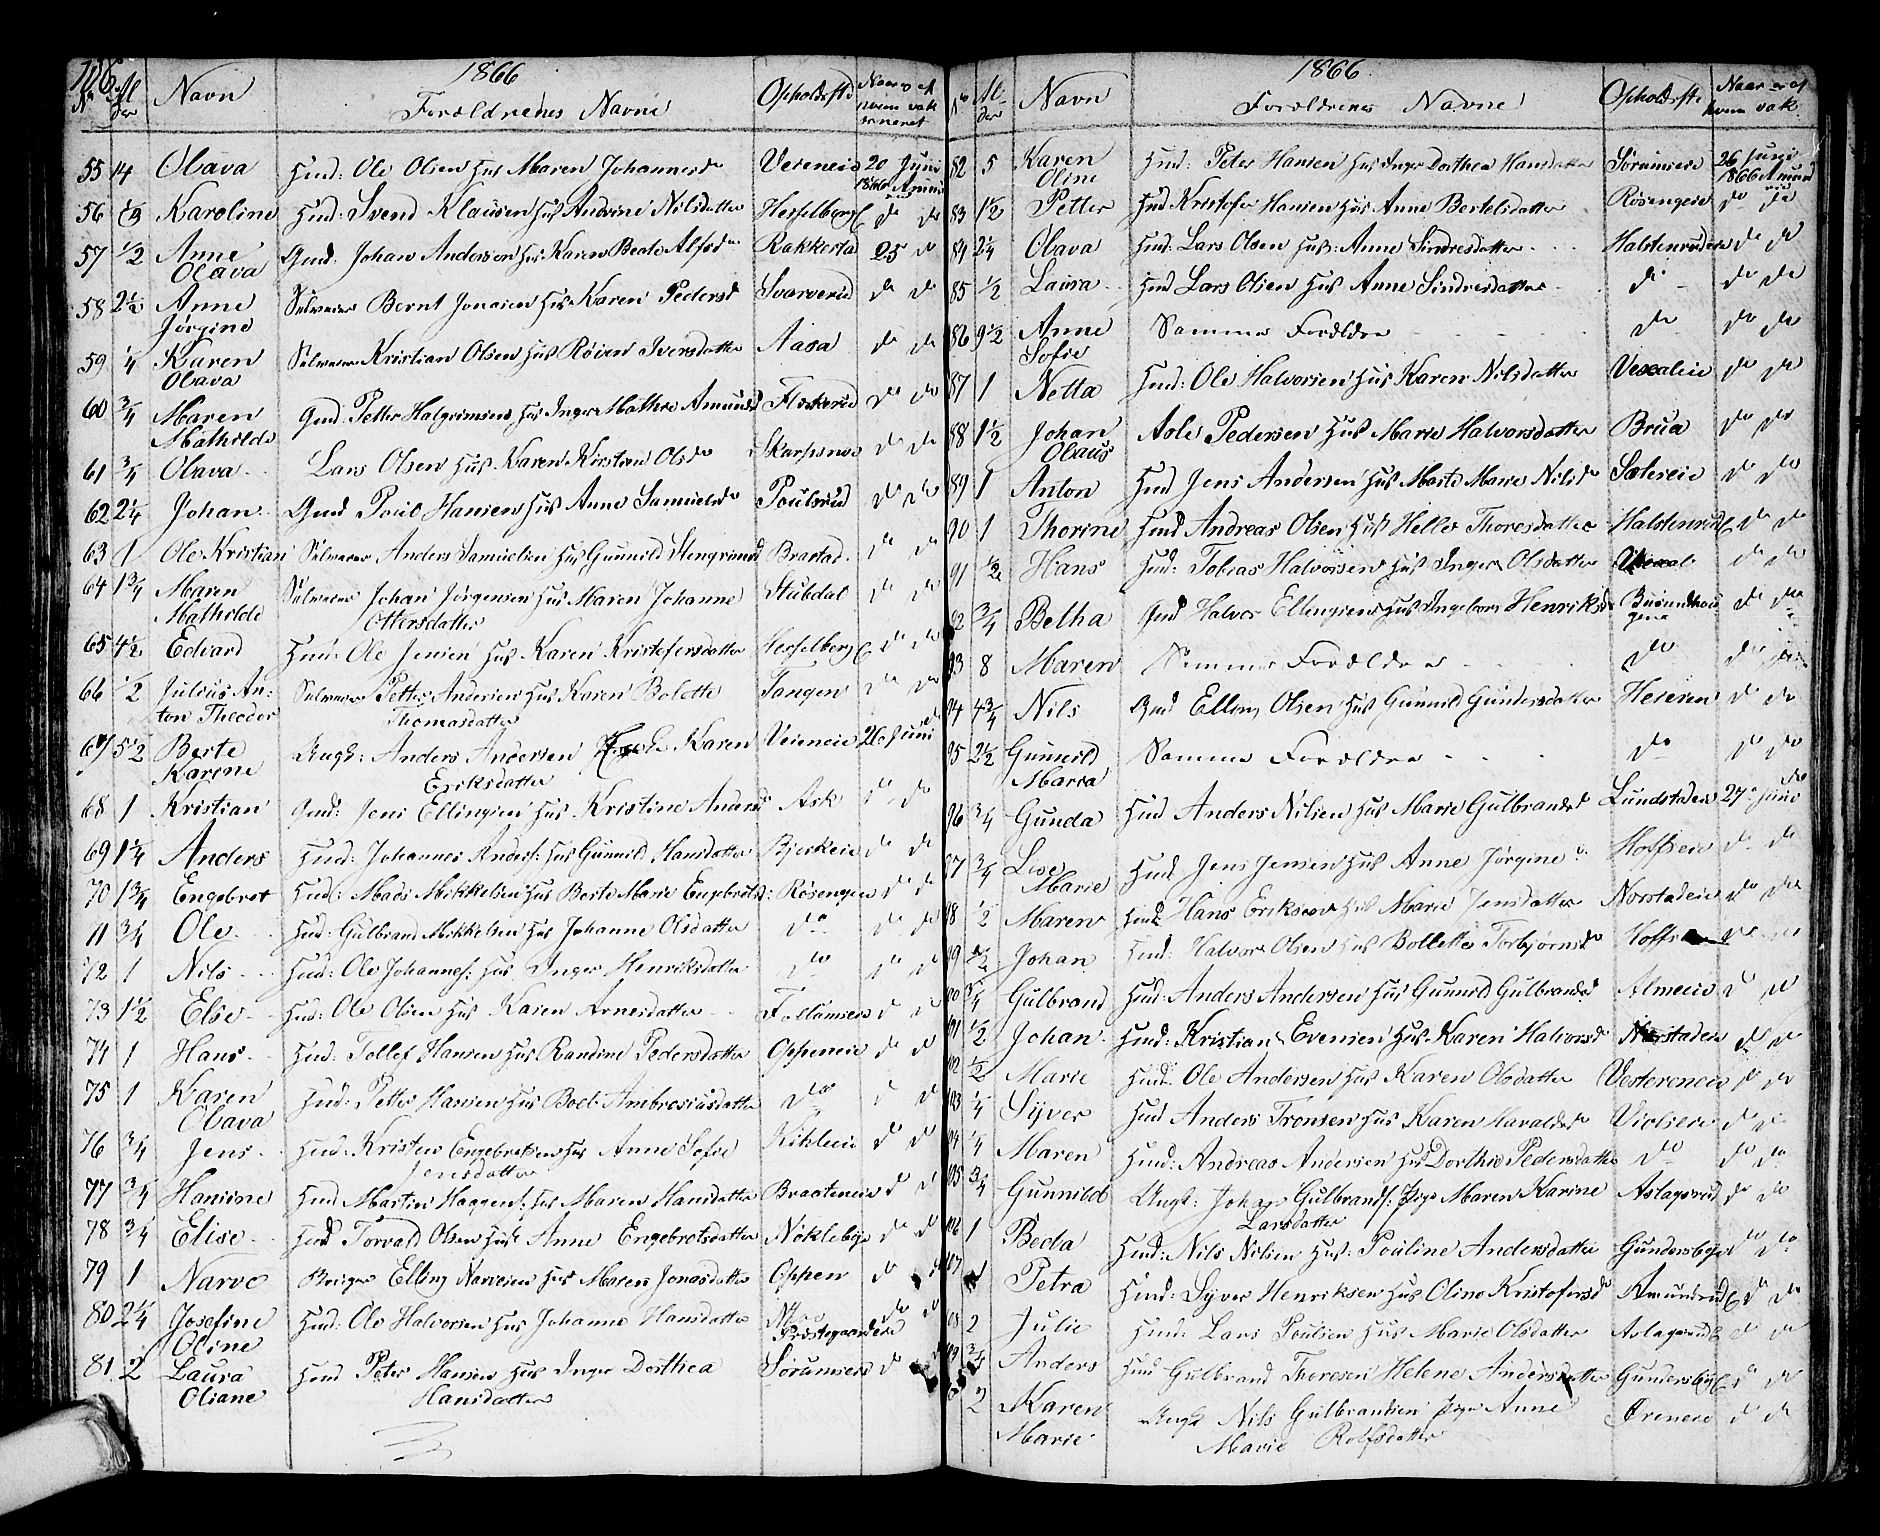 1866
No Alder Navn Forældrenes Navne Opholdsste Naar og af hvem vakcineret
55 14 Olava Husd: Ole Olsen Hus Maren Johannesd Vereneie 20 Juni 1866
56 Karoline Husd: Svend Klausen Hus Andrine Nilsdatter Hesselberg E do do
57 1/2 Anne Olava Gmd. Johan Anderson Hus Karen Beate Alfsd Rakkestad 25 do
58 2 1/2 Anne Jørgine Selveier Bernt Jonasen Hus Karen Pedersd Svarverud do do
59 1/4 Karen Olava Selveier Kristian Olsen Hus Røien Iversdatter Aasa do do
60 3/4 Maren Mathilde Gmd. Petter Halgrimsens Hus Inger Mathea Amunds do do
61 3/4 Olava Lars Olsen Hus Karen Kirstine Olsd Skarpsno do do
62 2 1/4 Johan Gmd Poul Hansen Hus Anne Samuelsd Poulsrud do do
63 1 Ole Kristian Selveier Anders Samuelsen Hus Gunnild Stengrimsd Braatad do do
64 1 3/4 Maren Mathilde Selveier Johan Jørgensen Hus Maren Johanne Ottersdatter Stubdal do do
65 4 1/2 Edvard Husd: Ole Jensen Hus Karen Kristofersdatter Hesselberg E do do
66 1/2 Julius Anton Theodor Selveier Petter Andersen Hus Karen Bolette Thomasdatter Tangen do do
67 5 1/2 Berte Karine Ungk: Anders Andersen Karen Eriksdatter Veieneie 26 Juni do
68 1 Kristian Gmd: Jens Ellingsen Hus Kristine Andersd Ask do do
69 1 1/4 Anders Husd: Johannes Anders: Hus Gunnild Hansdatter Bjerkeie do do
70 1 3/4 Engebret Husd: Mads Mikkelsen Hus Berte Marie Engebretsd: Røsengeie do do
71 3/4 Ole Husd: Gulbrand Mikkelsen Hus Johanne Olsdatter do do do
72 1 Nils Husd: Ole Johannes: Hus Inger Henriksdatter do do do
73 1 1/2 Else Husd: Ole Olsen Hus Karen Arnesdatter Follumseie do do
74 1 Hans Husd: Tollef Hansen Hus Randine Pedersdatter Oppeneie do do
75 1 Karen Olava Husd: Petter Hansen Hus Boel Ambrosiusdatter do do do
76 3/4 Jens Husd: Kristen Engebretsen Hus Anne Sofie Jensdatter Kihleeie do do
77 3/4 Hansine Husd Martin Haagens: Hus Maren Hansdatter Braateneie do do
78 3/4 Elise Husd Torvald Olsen Hus Anne Engebretsdatter Nøklebye do do
79 1 Narve Elling Narvesen Hus Maren Jonasdatter Oppen do do
80 2 1/4 Josefine Oline Husd: Ole Halvorsen Hus Johanne Hansdatter Præstegaardeie do do
81 2 Laura Oliane Husd Peter Hansen Hus Inger Dorthea Hansdatter Sørumseie do do
1866
No Alder Navn Forældrenes Navne Opholdsste Naar og af hvem vak.
82 5 Karen Oline Husd: Peter Hansen Hus Inger Dorthea Hansdatter Sørumseie 26 Juni 1866
83 1 1/2 Petter Husd Kristofer Hansen Hus Anne Bertelsdatter Røsengeie do do
84 2 1/4 Olava Husd: Lars Olsen Hus: Anne Sindresdatter Halstenrudeie do do
85 1/2 Laura Husd Lars Olsen Hus Anne Sindresdatter do do do
86 9 1/2 Anne Sofie Samme Forældre do do do
87 1 Netta Husd: Ole Halvorsen Hus Karen Nilsdatter do do
88 1 1/2 Johan Olaus Asle Pedersen Hus Marie Halvorsdatter Brua do do
89 1 Anton Husd Jens Andersen Hus Marte Marie Nilsd Sætereie do do
90 1 Thorine Husd Andreas Olsen Hus Helle Thoresdatter Halstenrud E do do
91 1/2 Hans Husd: Tobias Halvorsen Hus Inger Olsdatter do do
92 3/4 Betha Gmd Halvor Ellingsen Hus Ingeborg Henriksd do do
93 8 Maren Samme Forældre do do do
94 4 3/4 Nils Gmd Elling Olsen Hus Gunnild Gundersdatter do do
95 2 1/2 Gunnild Maria Samme Forældre do do do
96 3/4 Gunda Husd Anders Nilsen Hus Marie Gulbrandsd Lundstadeie 27 Juni do
97 3/4 Lise Marie Husd Jens Jensen Hus Anne Jørgine Hoffseie do do
98 1/2 Maren Husd Hans Eriksen Hus Marie Jensdatter Norstadeie do do
99 Johan Husd: Halvor Olsen Hus Bollette Torbjørnsd do
100 3/4 Gulbrand Husd: Anders Andersen Hus Gunnild Gulbrandsd Almeeie do do
101 1/2 Johan Husd: Kristian Evensen Hus Karen Halvorsd Norstadeie do do
102 1/2 Marie Husd: Ole Andersen Hus Karen Olsdatter Vestereneie do do
103 1/4 Syver Husd Anders Tronsen Hus Karen Haraldsd do do
104 1/4 Maren Husd: Andreas Andersen Hus Dorthe Pedersdatter do do do
105 3/4 Gunnild Ungk: Johan Gulbrands: Pige Maren Karine Larsdatter Aslagsrud do do
106 1 Beda Husd: Nils Nilsen Hus: Pouline Andersdatter Gundersbye do do
107 1 Petra Husd: Syver Henriksen Hus Oline Kristofersd Amundrud E do do
108 2 Julie Husd: Lars Poulsen Hus Marie Olsdatter Aslagsrud E do do
109 3/4 Anders Husd Gulbrand Thoresen Helene Andersdatter Gundersby E do do
110 2 Karen Marie Ungk Nils Gulbrandsen Pige Anne Marie Rolfsdatter do do